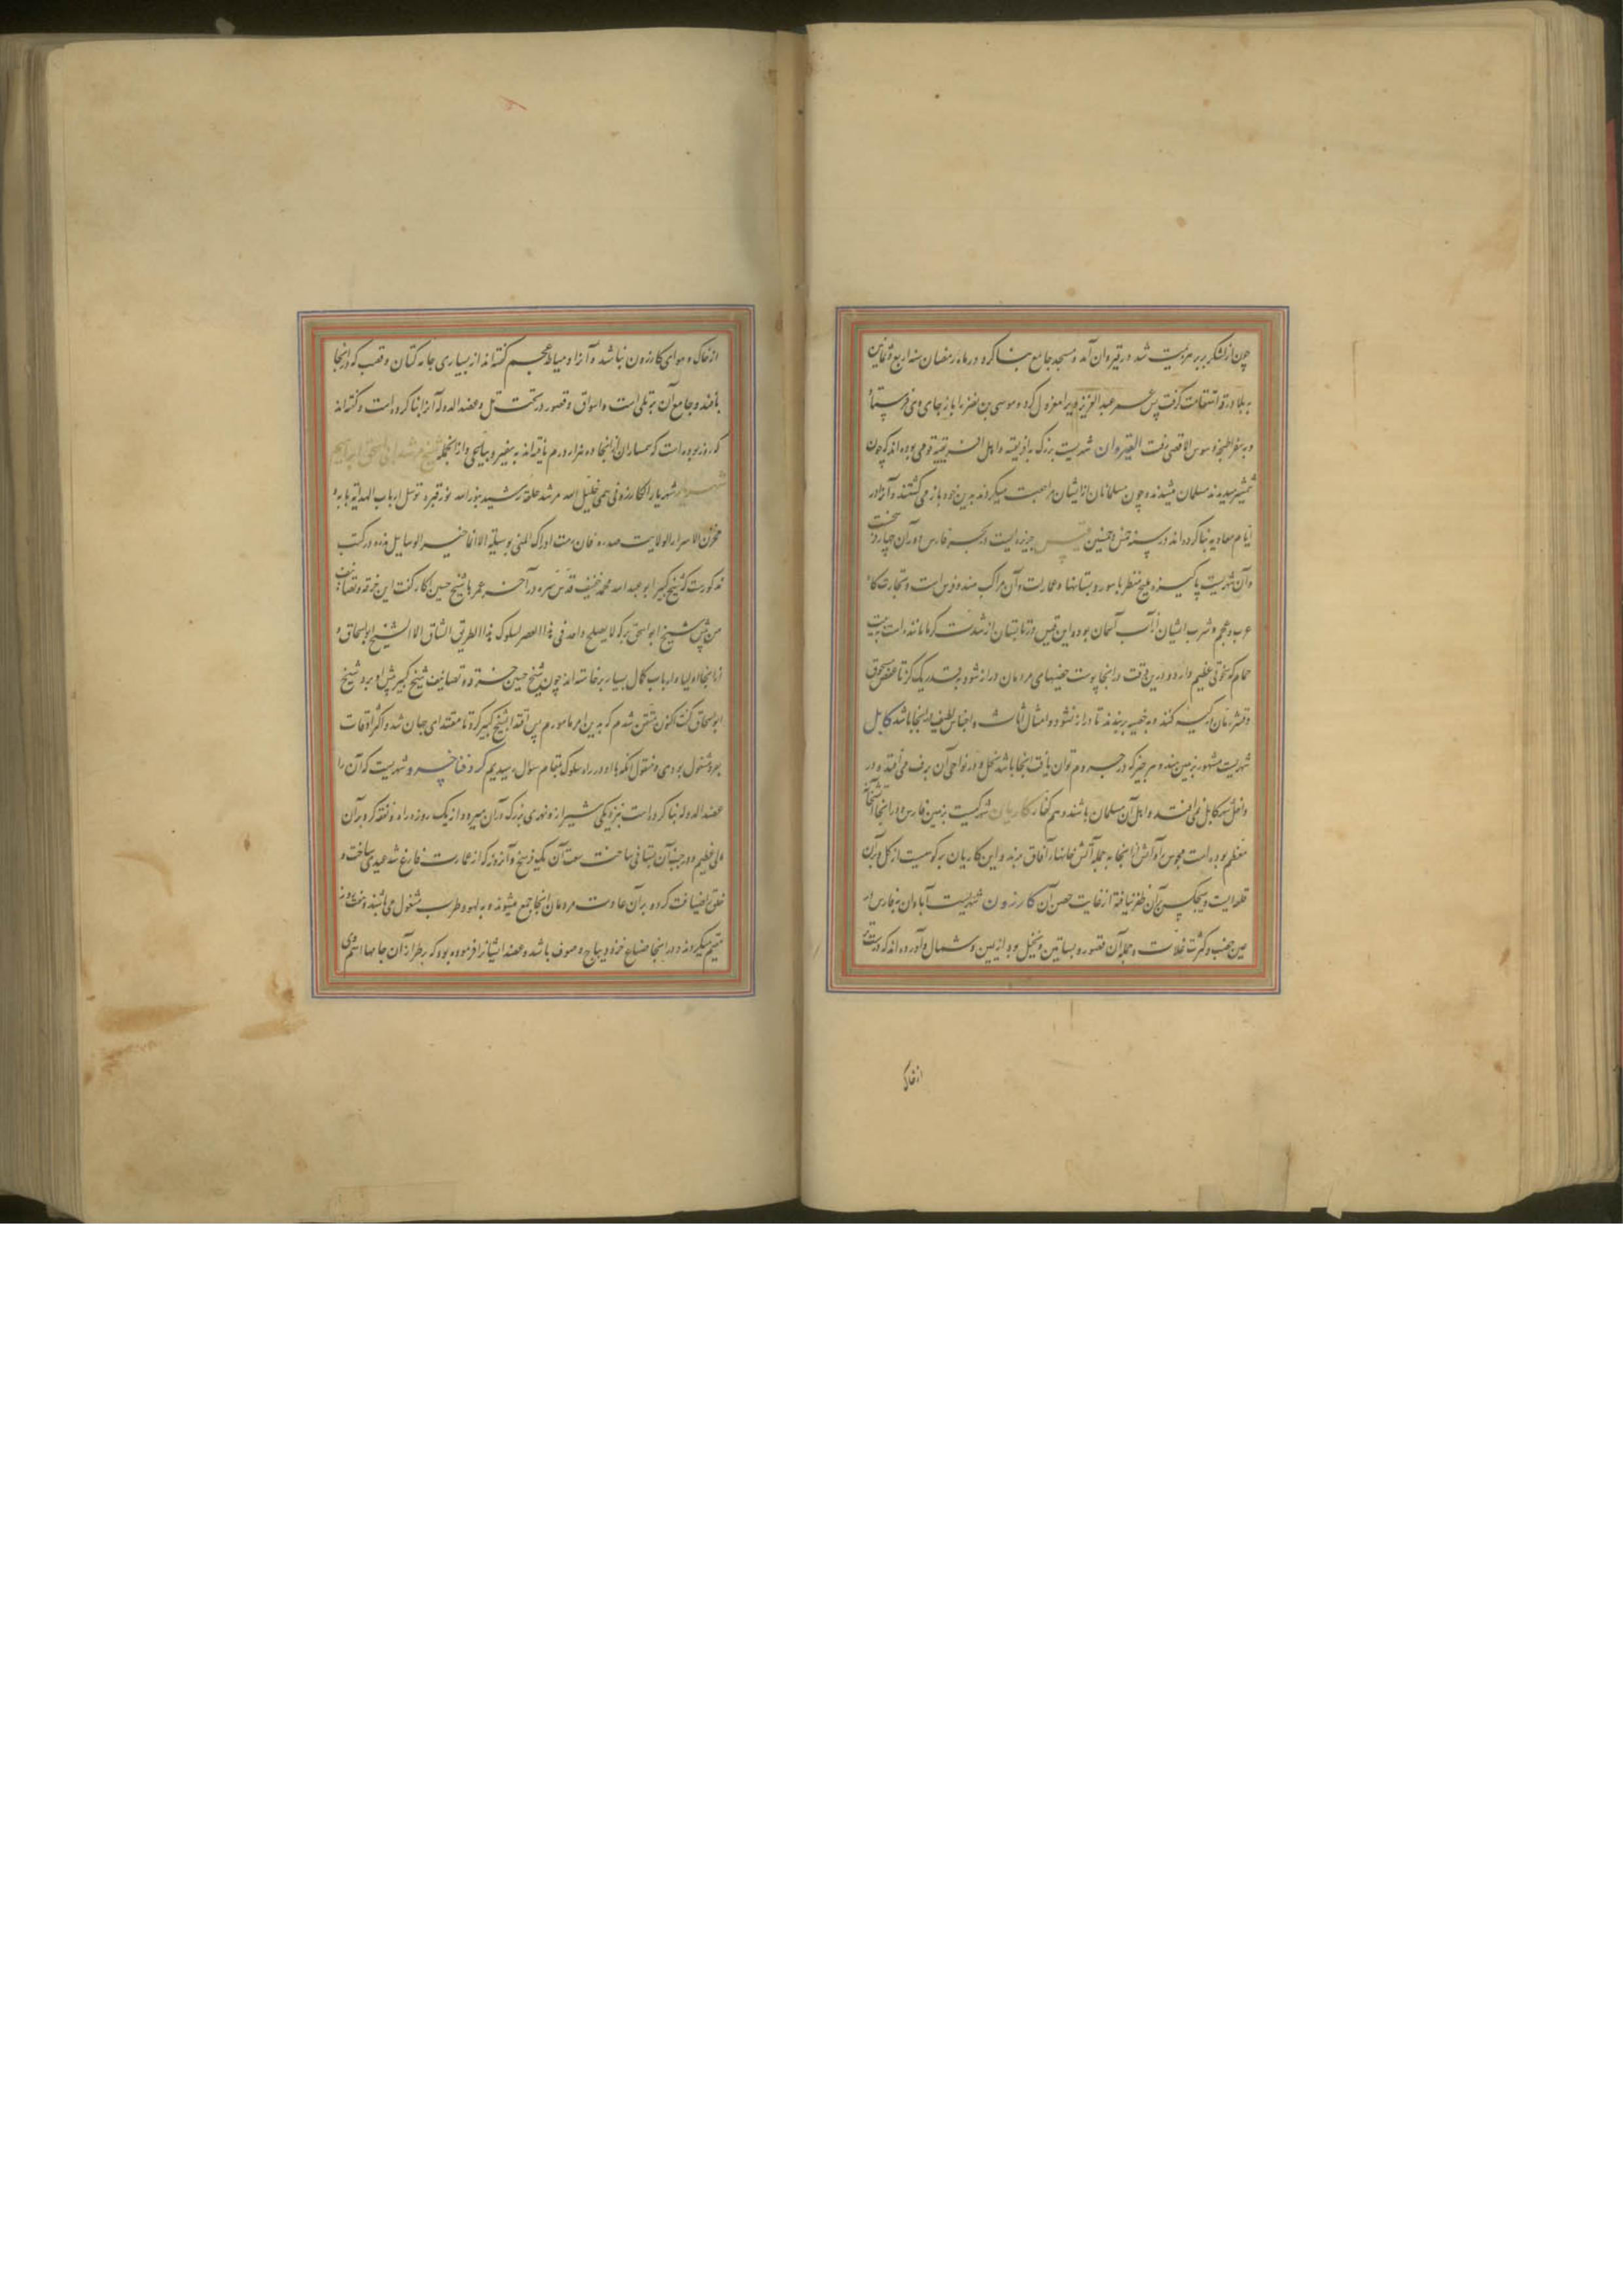 چون از لشکر بربر هزیمت شد در قیروان آمد و مسجد جامع بنا کرد در ماه رمضان سنه اربع و ثمانین
به بلاد رقه استقامت گرفت پس عمر عبد العزیز ویرا معزول کرد و موسی بن نصر را باز جای وی فرستاد
و به سفر طنجه و سوس الاقصی رفت القیروان شهریست بزرگ به افریقیه و اهل افریقیه قومی بوده‌اند که چون
شمشیر میدیدند مسلمان میشدند و چون مسلمانان از ایشان مراجعت میکردند بدین خود باز می‌گشتند و آنرا در
ایام معاویه بنا کرده‌اند در سنه خمس و خمسین قیس جزیره‌ایست در بحر فارس دور آن چهار فرسخست
و آن شهریست پاکیزه و ملیح منظر با سور و بستانها و عمارات و آن مراکب هند و فرس است و تجارتگاه
عرب و عجم و شرب ایشان از آب آسمان بود و این قیس در تابستان از شدت گرما مانند است به بیت
حمام که سخونتی عظیم دارد و درین وقت در آنجا پوست خصیهای مردمان دراز شود به قدر یک گز تا عفص مسحوق
و قشر رمان در کیسه کنند و به خصیه بربندند تا دراز نشود و امثال اثاث و اجناس لطیف در اینجا باشد کابل
شهریست مشهور بزمین هند و هر چیز که در جروم توان یافت آنجا باشد نخل و در نواحی آن برف می‌افتد و در
داخل شهر کابل نمی‌افتد و اهل آن مسلمان باشند و هم کفار کاریان شهرکیست بزمین فارس و در آنجا آتشخانه
معظم بوده است مجوس را و آتش از آنجا به جمله آتش خانها در آفاق برند و این کاریان بر کوهیست از گل و بر آن
قلعه‌ایست و هیچکس بر آن ظفر نیافته از غایت حصن آن کازرون شهریست آبادان به فارس از
حین خصب و کثرت غلات و جمله آن قصور و بساتین و نخیل بود از یمین و شمال و آورده‌اند که درست‌تر
از خاک
از خاک و هوای کازرون نباشد و آنرا دمیاط عجم گفته‌اند از بسیاری جامه کتان و قصب که در آنجا
بافند و جامع آن بر تلی است و اسواق و قصور در تحت تل و عضد الدوله آنرا بنا کرده است و گفته‌اند
که روز بوده است که سمساران از آنجا ده هزار درم یافته‌اند به سفیر و بیاعی و از آنجمله شیخ مرشد ابی اسحق ابراهیم
شهریار شهریار الکازرونی سمی خلیل الله مرشد خلقه رشید بنور الله نور قبره توسل ارباب الهدایة بابه و
مخزن الاسرار الولایت صدره فان رمت ادراک المنی بوسیلة الا انما خیر الوسایل نذره در کتب
مذکورست که شیخ کبیر ابو عبد الله محمد خفیف قدس سره در آخر عمر با شیخ حسین اکار گفت این خرقه و تصانیف
من پیش شیخ ابو اسحق بر که لا یصلح واحد فی هذا العصر لسلوک هذا الطریق الشاق الا الشیخ ابو اسحاق و
از آنجا اولیا و ارباب کمال بسیار برخاسته‌اند چون شیخ حسین خرقه و تصانیف شیخ کبیر پیش او برد شیخ
ابو اسحاق گفت اکنون متیقن شدم که بدین امر مامورم پس اقتدا بشیخ کبیر کرد تا مقتدای جهان شد و اکثر اوقات
مشغول بودی و منقول آنکه با او در راه سلوک بمقام سؤال رسیدیم کرد فنا خسرو شهریست که آن را
عضد الدوله بنا کرده است بنزدیکی شیراز و نهری بزرگ در آن میرود از یک روزه راه و نفقه کرد بر آن
مالی عظیم و در جنب آن بستانی ساخت سعت آن یک فرسخ و آنروز که از عمارت فارغ شد عیدی ساخت و
خلق را ضیافت کرد و بر آن عادت مردمان آنجا جمع میشوند و به لهو و طرب مشغول می‌باشند و هفت روز
مقیم میگردند و در آنجا صناع خز و دیباج و صوف باشد و عضد ایشانرا فرموده بود که بر طراز آن جامها اسم وی